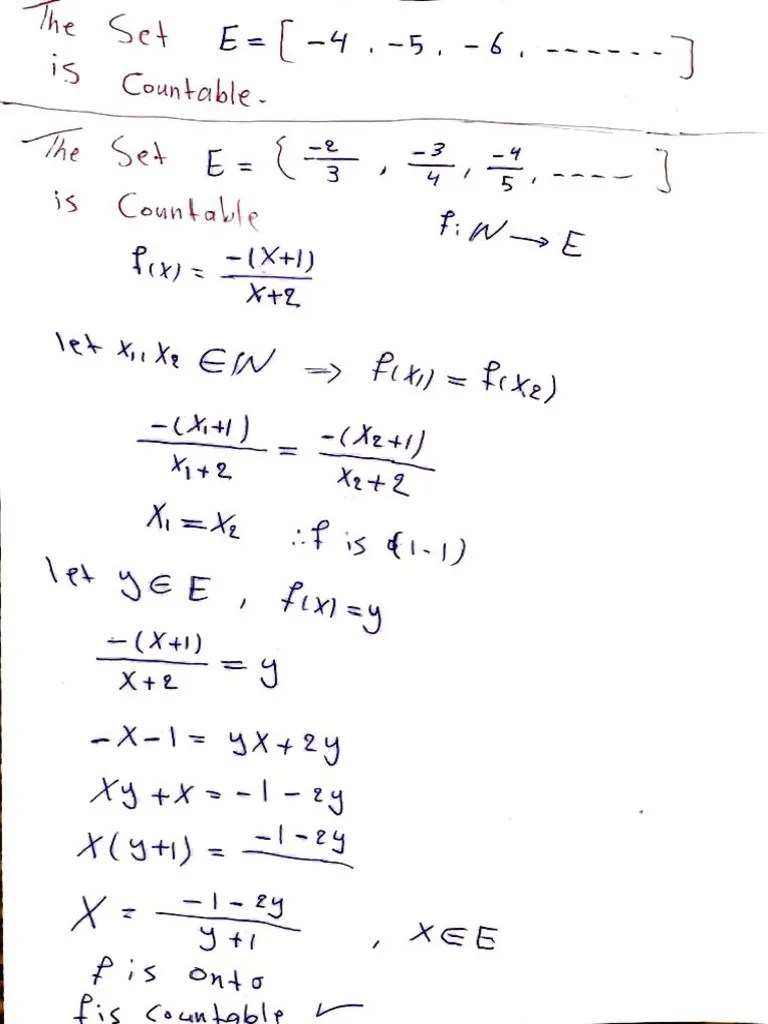 The Set E = [ -4 , -5 , -6 , ------- ]
is Countable.
The Set E = { -2/3 , -3/4 , -4/5 , ---- ]
is Countable
f: N → E
f(x) = -(x+1)/x+2
let x1, x2 ∈ N ⇒ f(x1) = f(x2)
-(x1+1)/x1+2 = -(x2+1)/x2+2
x1 = x2 ∴ f is (1-1)
let y ∈ E , f(x) = y
-(x+1)/x+2 = y
-x-1 = yx+2y
xy + x = -1 - 2y
x(y+1) = -1-2y
x = -1-2y/y+1 , x ∈ E
f is onto
f is countable